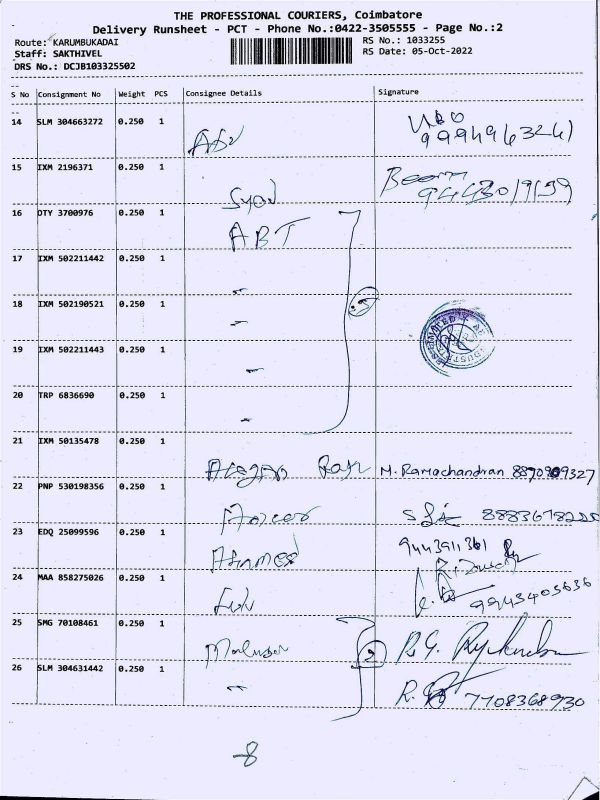 THE PROFESSIONAL COURIERS, Coimbatore
Delivery Runsheet - PCT - Phone No.:0422-3505555 - Page No.:2
Route: KARUMBUKADAI RS No.: 1033255
Staff: SAKTHIVEL RS Date: 05-Oct-2022
DRS No.: DCJB103325502
S No Consignment No Weight PCS Consignee Details Signature
14 SLM 304663272 0.250 1
15 IXM 2196371 0.250 1
16 DTY 3700976 0.250 1 ABT
17 IXM 502211442 0.250 1
18 IXM 502190521 0.250 1
19 IXM 502211443 0.250 1
20 TRP 6836690 0.250 1
21 IXM 50135478 0.250 1 M. Ramachandran
22 PNP 530198356 0.250 1
23 EDQ 25099596 0.250 1 Ahmed 9443911361
24 MAA 858275026 0.250 1 9943403636
25 SMG 70108461 0.250 1 2
26 SLM 304631442 0.250 1 7708368930
8